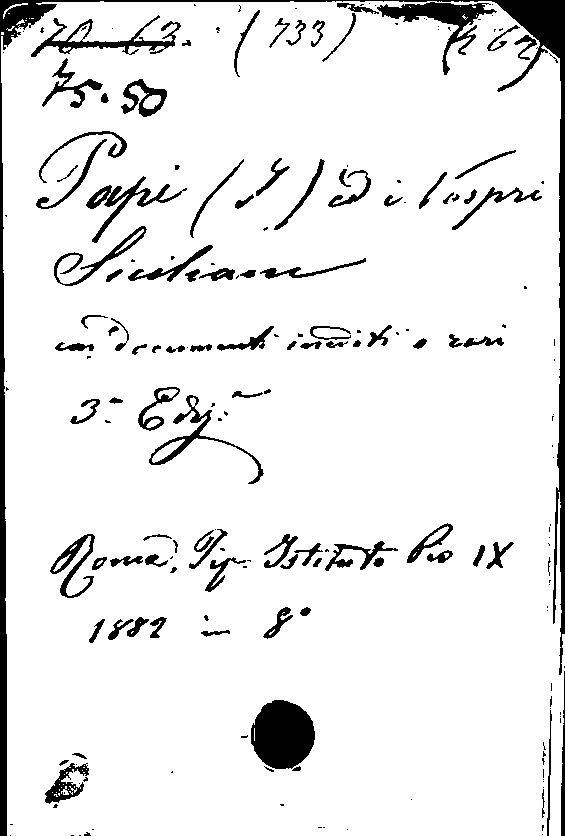 70-63. (733) (2 62)
75.50
Papi (I) ed i Vespri
Siciliani
con documenti inediti o rari
3ª Ediz.
Roma, Tip. Istituto Pio IX
1882 in 8°